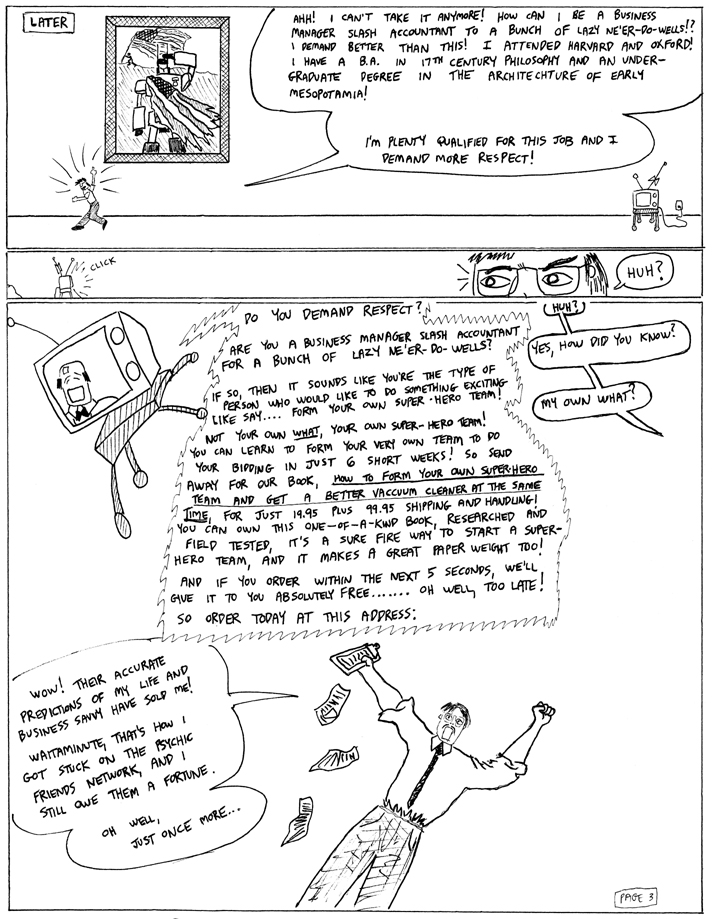 LATER
AHH! I CAN'T TAKE IT ANYMORE! HOW CAN I BE A BUSINESS
MANAGER SLASH ACCOUNTANT TO A BUNCH OF LAZY NE'ER-DO-WELLS!?
I DEMAND BETTER THAN THIS! I ATTENDED HARVARD AND OXFORD!
I HAVE A B.A. IN 17TH CENTURY PHILOSOPHY AND AN UNDER-
GRADUATE DEGREE IN THE ARCHITECHTURE OF EARLY
MESOPOTAMIA!
I'M PLENTY QUALIFIED FOR THIS JOB AND I
DEMAND MORE RESPECT!
CLICK
HUH?
DO YOU DEMAND RESPECT?
HUH?
ARE YOU A BUSINESS MANAGER SLASH ACCOUNTANT
FOR A BUNCH OF LAZY NE'ER-DO-WELLS?
YES, HOW DID YOU KNOW?
IF SO, THEN IT SOUNDS LIKE YOU'RE THE TYPE OF
PERSON WHO WOULD LIKE TO DO SOMETHING EXCITING
LIKE SAY.... FORM YOUR OWN SUPER-HERO TEAM!
MY OWN WHAT?
NOT YOUR OWN WHAT, YOUR OWN SUPER-HERO TEAM!
YOU CAN LEARN TO FORM YOUR VERY OWN TEAM TO DO
YOUR BIDDING IN JUST 6 SHORT WEEKS! SO SEND
AWAY FOR OUR BOOK, HOW TO FORM YOUR OWN SUPER-HERO
TEAM AND GET A BETTER VACCUUM CLEANER AT THE SAME
TIME, FOR JUST 19.95 PLUS 99.95 SHIPPING AND HANDLING!
YOU CAN OWN THIS ONE-OF-A-KIND BOOK, RESEARCHED AND
FIELD TESTED, IT'S A SURE FIRE WAY TO START A SUPER-
HERO TEAM, AND IT MAKES A GREAT PAPER WEIGHT TOO!
AND IF YOU ORDER WITHIN THE NEXT 5 SECONDS, WE'LL
GIVE IT TO YOU ABSOLUTELY FREE....... OH WELL, TOO LATE!
SO ORDER TODAY AT THIS ADDRESS:
WOW! THEIR ACCURATE
PREDICTIONS OF MY LIFE AND
BUSINESS SAVVY HAVE SOLD ME!
WAITAMINUTE, THAT'S HOW I
GOT STUCK ON THE PSYCHIC
FRIENDS NETWORK, AND I
STILL OWE THEM A FORTUNE.
OH WELL,
JUST ONCE MORE...
PAGE 3